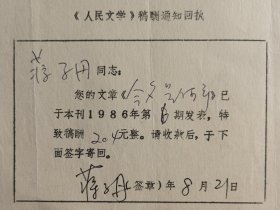 《人民文学》稿酬通知回执
蒋子丹同志:
您的文章《》已
于本刊1986年第期发表,特
致稿酬204元整。请收款后,于下
面签字寄回。
蒋子丹(签章)年8月21日